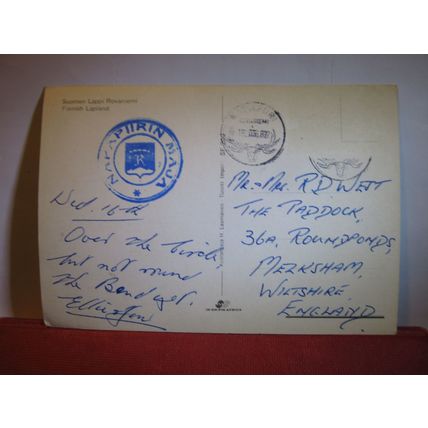 Suomen Lappi Rovaniemi
Finnish Lapland
NAPAPIIRIN MAJA
R
Wed. 16th
Over the circle,
but not round
the Bend yet.
NAPAPIIRI
Mr & Mrs. R D WEST
THE PADDOCK,
36A, ROUNDPONDS,
MELKSHAM,
WILTSHIRE,
ENGLAND